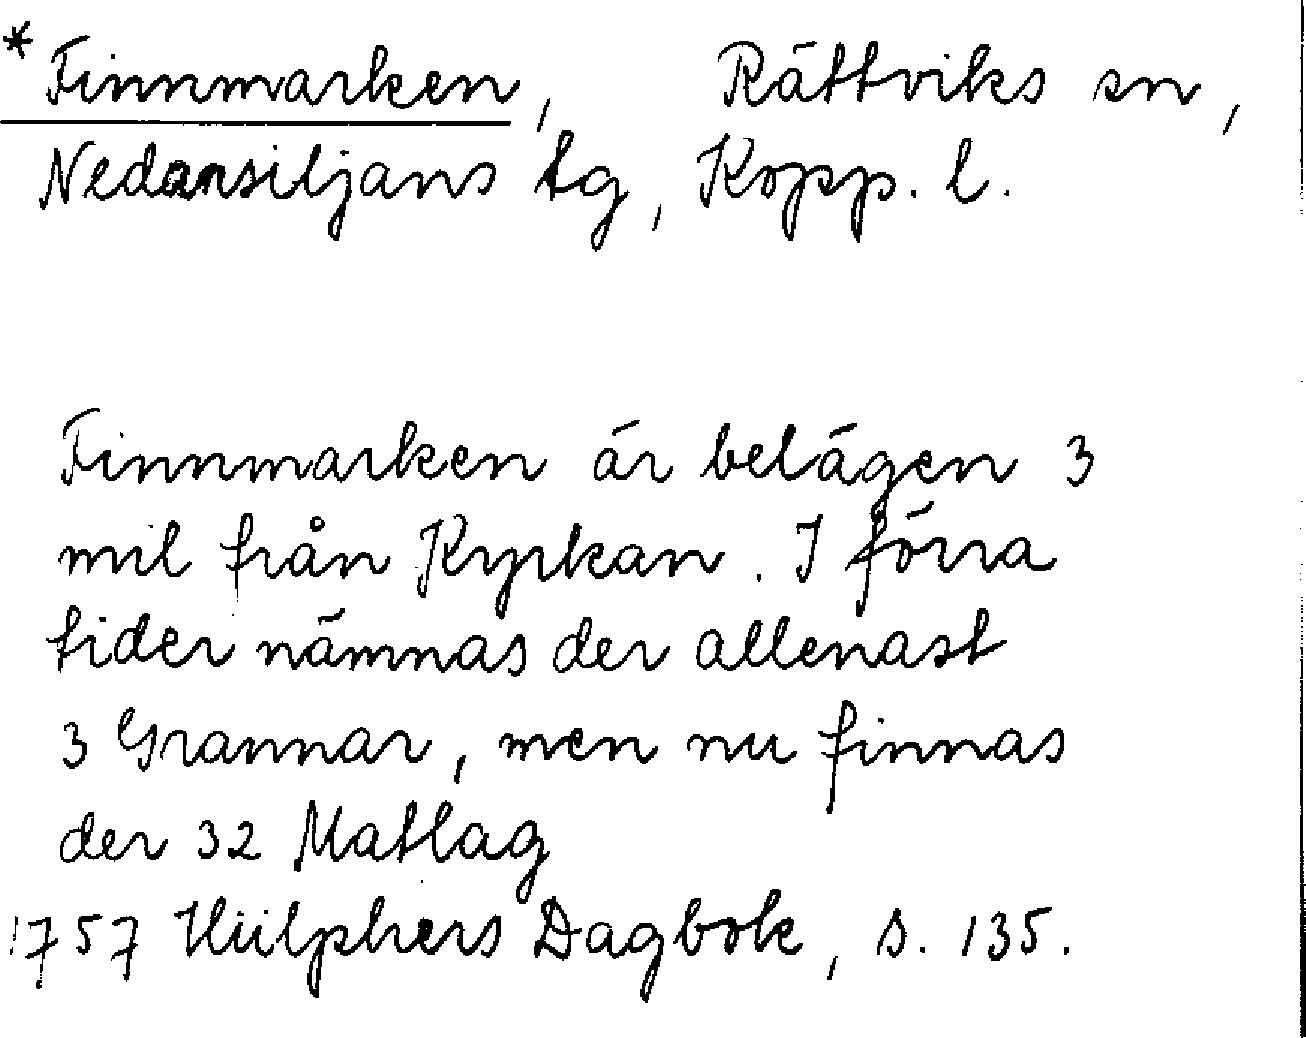 * Finnmarken, Rättviks sn,
Nedansiljans tg, Kopp. l.
Finnmarken är belägen 3
mil från Kyrkan. I förra
tider nämnas der allenast
3 Grannar, men nu finnas
der 32 Matlag
1757 Hülphers Dagbok, s. 135.